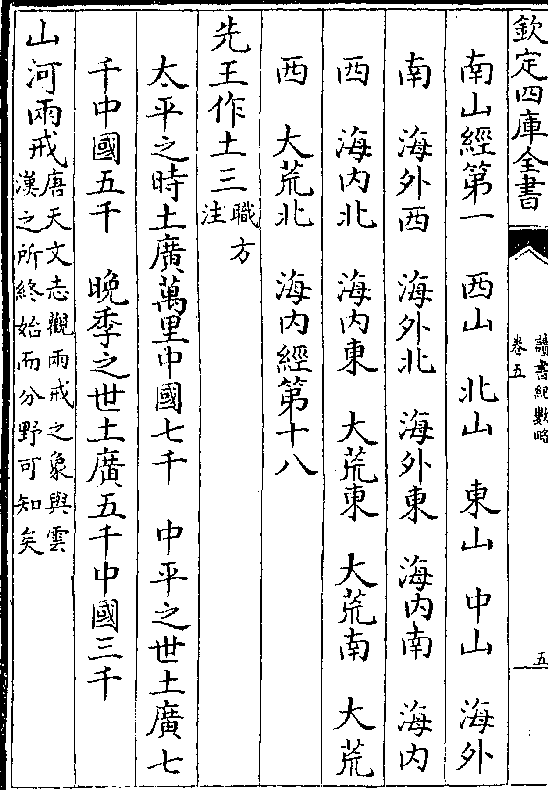 欽定四庫全書
讀書紀數略
卷五
五
南山經第一 西山 北山 東山 中山 海外
南 海外西 海外北 海外東 海内南 海内
西 海内北 海内東 大荒東 大荒南 大荒
西 大荒北 海内經第十八
先王作土三職方
注
太平之時土廣萬里中國七千 中平之世土廣七
千中國五千 晚季之世土廣五千中國三千
山河兩戒唐天文志觀兩戒之象與雲
漢之所終始而分野可知矣